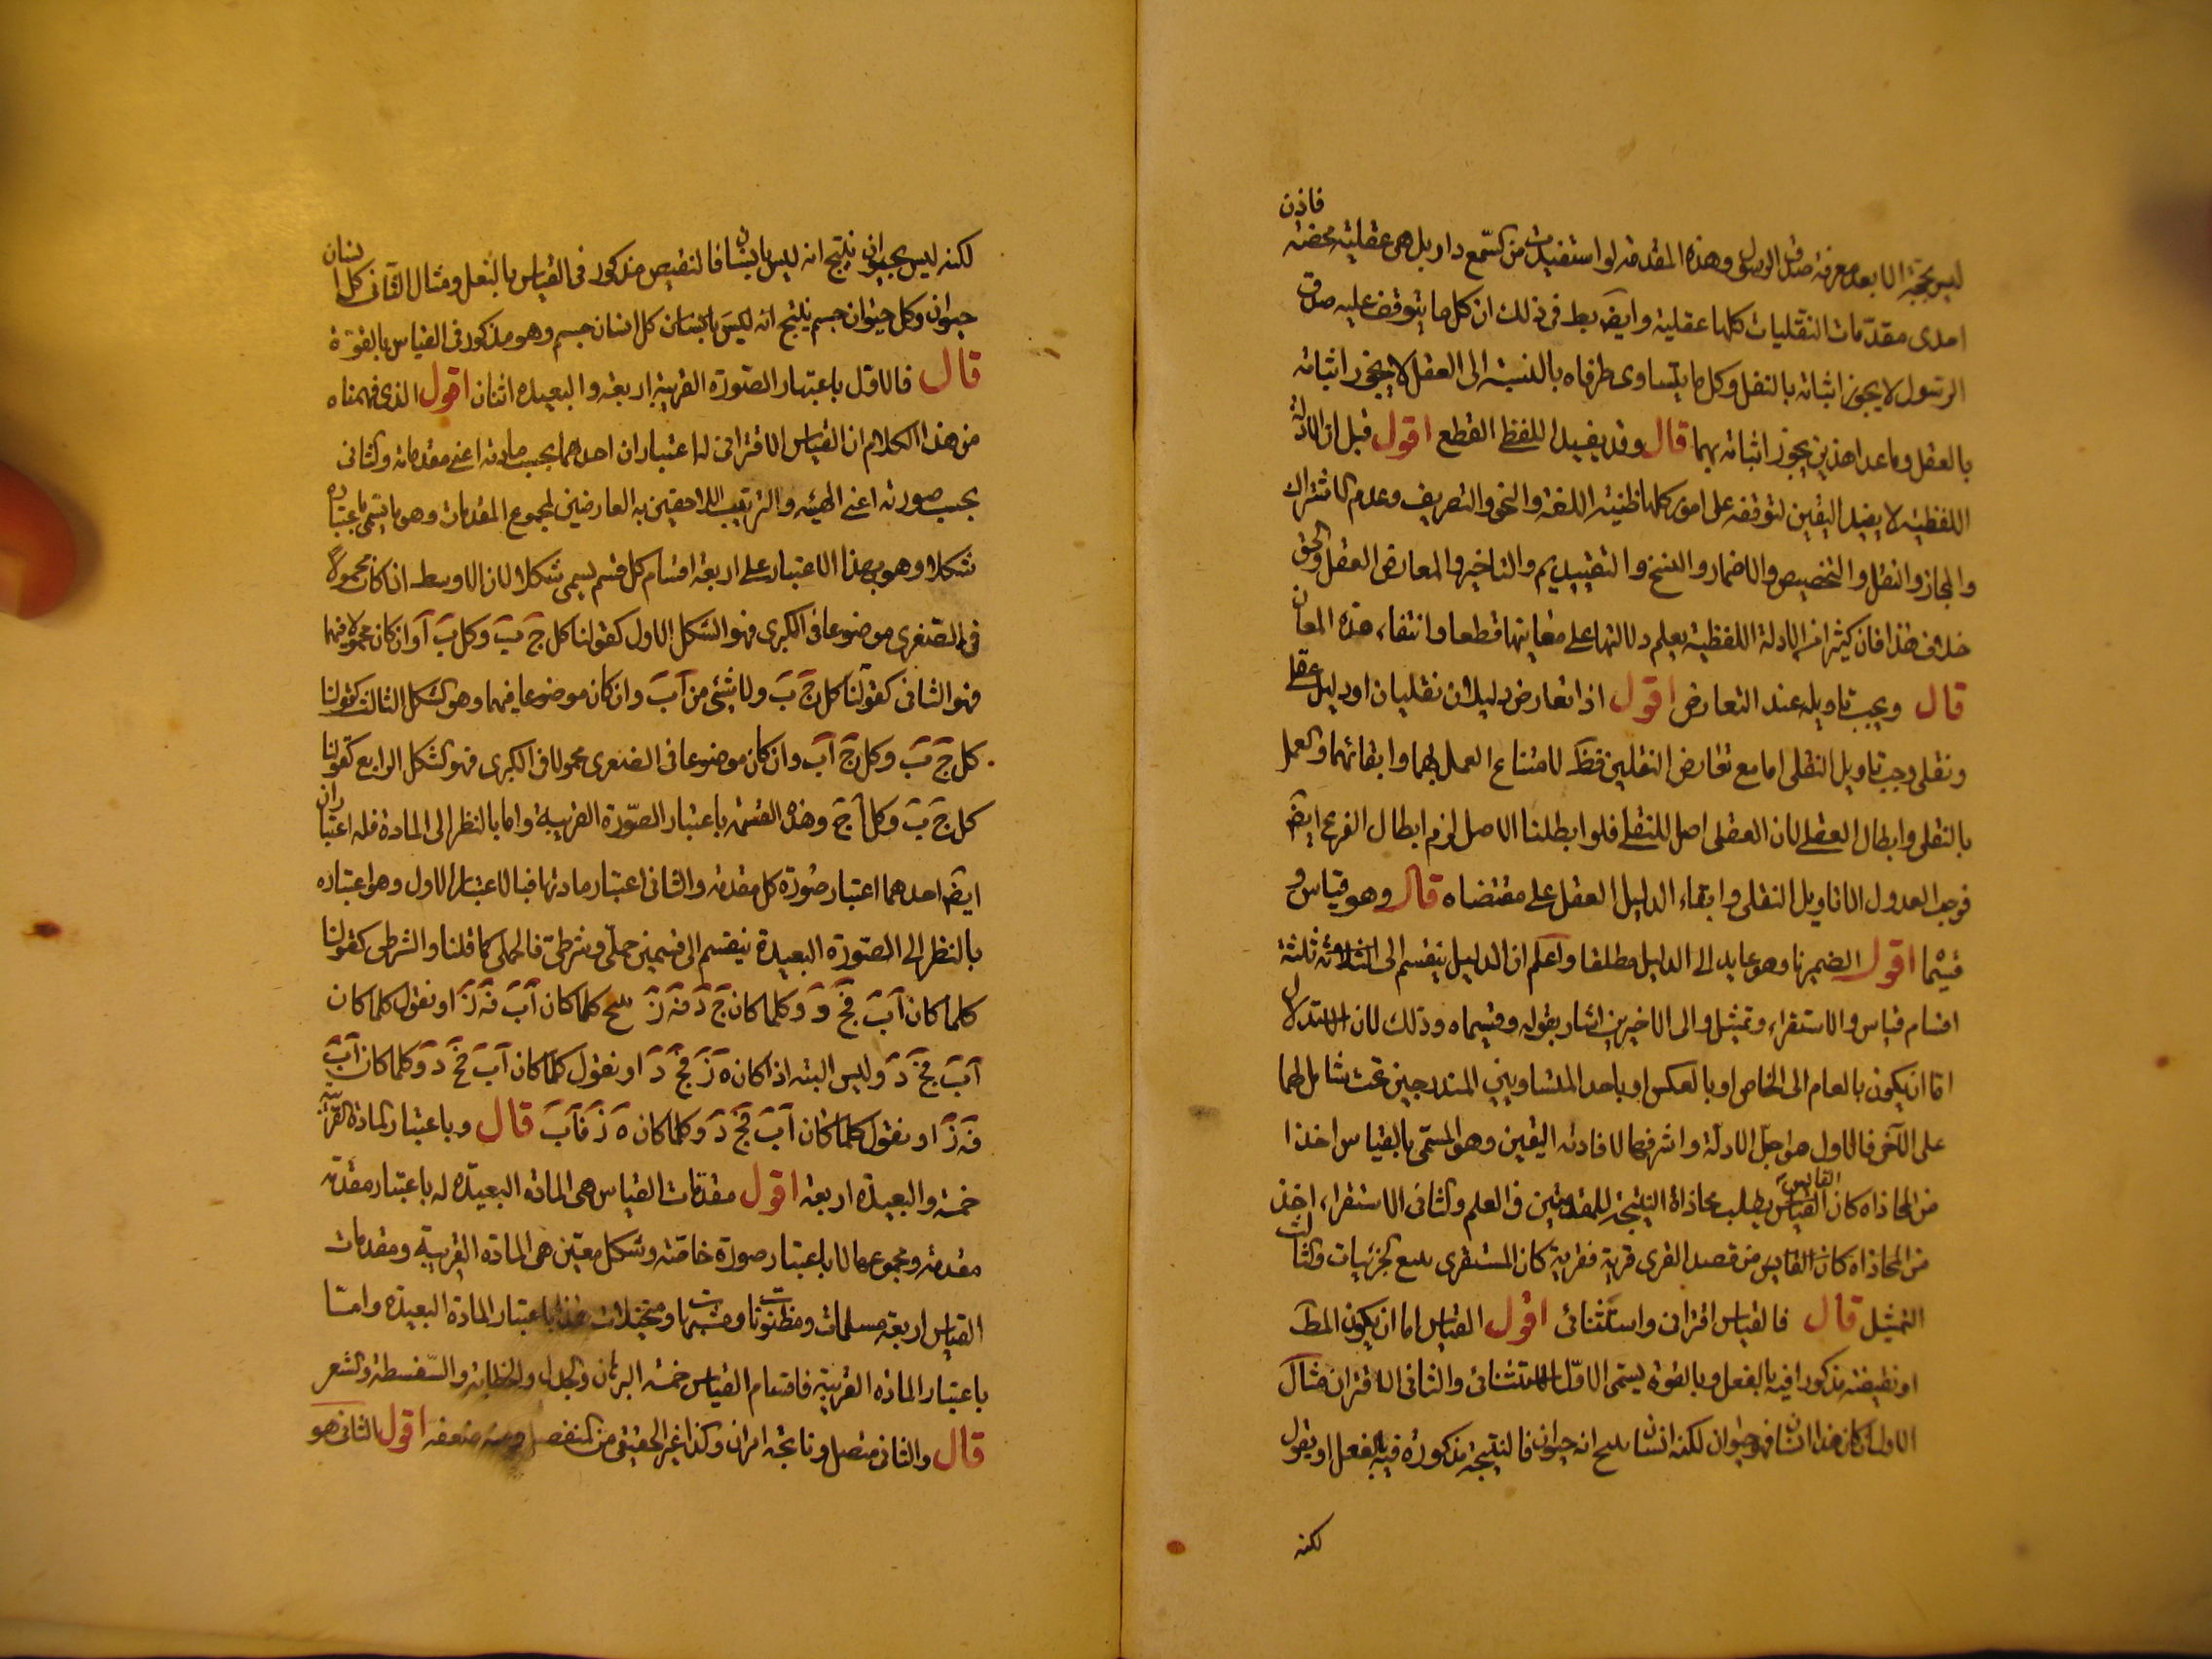 فاذن
ليس بحجة الا بعد معرفة صدق الرسول وهذه المقدمة لو استفيدت من السمع دار بل هى عقلية محضة
احدى مقدّمات النقليات كلها عقلية وايض يعط فى ذلك ان كل ما يتوقف عليه صدق
الرسول لا يجوز اثباته بالنقل وكل ما يتساوى طرفاه بالنسبة الى العقل لا يجوز اثباته
بالعقل وما عدا هذين يجوز اثباته بهما قال وقد يفيد اللفظ القطع اقول قيل ان الادلة
اللفظية لا يفيد اليقين لتوقفه على امور كلها ظنية اللغة والنحو والتصريف وعدم الاشتراك
والمجاز والنقل والتخصيص والاضمار والنسخ والتقديم والتاخير والمعارض العقلى والحق
خلاف هذا فان كثيرا من الادلة اللفظية يعلم دلالتها على معانيها قطعا وانتفاء هذه المعان
قال ويجب تاويله عند التعارض اقول اذا تعارض دليلان نقليان او دليل عقلى
ونقلى وجب تاويل النقلى اما مع تعارض النقلين فظ لامتناع العمل بهما وابقائهما والعمل
بالنقلى وابطال العقلى لان العقلى اصل للنقلى فلو ابطلنا الاصل لزم ابطال الفرع ايض
فوجب العدول الى تاويل النقلى وابقاء الدليل العقلى على مقتضاه قال وهو قياس و
قسيما اقول الضمير نا وهو عايد الى الدليل مطلقا واعلم ان الدليل ينقسم الى ثلثة
اقسام قياس والاستقراء وتمثيل والى الاخيرين اشار بقوله وقسيماه وذلك لان الاستدلال
اما ان يكون بالعام الى الخاص او بالعكس او باحد المتساويين المندرجين تحت شامل لهما
على الآخر فالاول هو اجلّ الادلة واشرفها لافادته اليقين وهو المسمّى بالقياس اخذا
من المحاذاه كان القايس يطلب محاذاة النتيجة للمقدمتين فى العلم والثانى الاستقراء اخذ
من المحاذاه كان القايس من قصد القرى قرية فقرية كان المستقرى يتبع الجزئيات والثالث
التمثيل قال فالقياس اقترانى واستثنائى اقول القياس اما ان يكون المط
او نقيضه مذكورا فيه بالفعل وبالقوة يسمى الاوّل الاستثنائى والثانى الاقترانى مثال
الاول ان كان هذا انسانا فهو حيوان لكنه انسان ينتج انه حيوان فالنتيجة مذكورة فيه بالفعل او يقول
لكنه
لكنه ليس بحيوان ينتج انه ليس بانسان فالنقيض مذكور فى القياس بالفعل ومثال الثانى كل انسان
حيوان وكل حيوان جسم ينتج كل انسان جسم وهو مذكور فى القياس بالقوة
قال فالاول باعتبار الصورة القريبة اربعة والبعيدة اثنان اقول الذى فهمناه
من هذا الكلام ان القياس الاقترانى له اعتباران احدهما بحسب مادته اعنى مقدماته والثانى
بحسب صورته اعنى الهيئه والترتيب اللاحقين به العارضين لمجموع المقدمات وهو ما يسمى باعتباره
شكلا وهو بهذا الاعتبار على اربعة اقسام كل قسم يسمى شكلا لان الاوسط ان كان محمولا
فى الصغرى موضوعا فى الكبرى فهو الشكل الاول كقولنا كل ج ب وكل ب آ وان كان محمولا فيهما
فهو الثانى كقولنا كل ج ب ولا شئ من آ ب وان كان موضوعا فيهما وهو الشكل الثالث كقولنا
كل ج ب وكل ج آب وان كان موضوعا فى الصغرى محمولا فى الكبرى فهو الشكل الرابع كقولنا
كل ج ب وكل آ ج وهذه القسمة باعتبار الصّورة القريبة واما بالنظر الى المادة فله اعتباران
ايض احدهما اعتبار صورة كل مقدمة والثانى اعتبار مادتها فبالاعتبار الاول وهو اعتباره
بالنظر الى الصورة البعيدة ينقسم الى قسمين حملّى وشرطىّ فالحملى كما قلنا والشرطى كقولنا
كلما كان آ ب فج د وكلما كان ج د فه ز ينتج كلما كان آ ب فه ز او نقول كلما كان
آ ب فج د وليس البتة اذا كان ه ز فج د او نقول كلما كان آ ب فج د وكلما كان آ ب
فه ز او نقول كلما كان آ ب فج د وكلما كان ه ز فآ ب قال وباعتبار المادة القريبة
خمسة والبعيدة اربعة اقول مقدّمات القياس هى المادة البعيدة له باعتبار مقدمة
مقدمة ومجموعها لا باعتبار صورة خاصّة وشكل معيّن هى المادة القريبة ومقدمات
القياس اربعة مسلمات ومظنونات ومشبهات ومخيلات هذا باعتبار المادة البعيدة وامّا
باعتبار الماده القريبة فاقسام القياس خمسة البرهان والجدل والخطابة والسّفسطة والشعر
قال والثانى متصل وناتجة امران وكذا غير الحقيقى من المنفصل ومنه ضعفه اقول الثانى هو